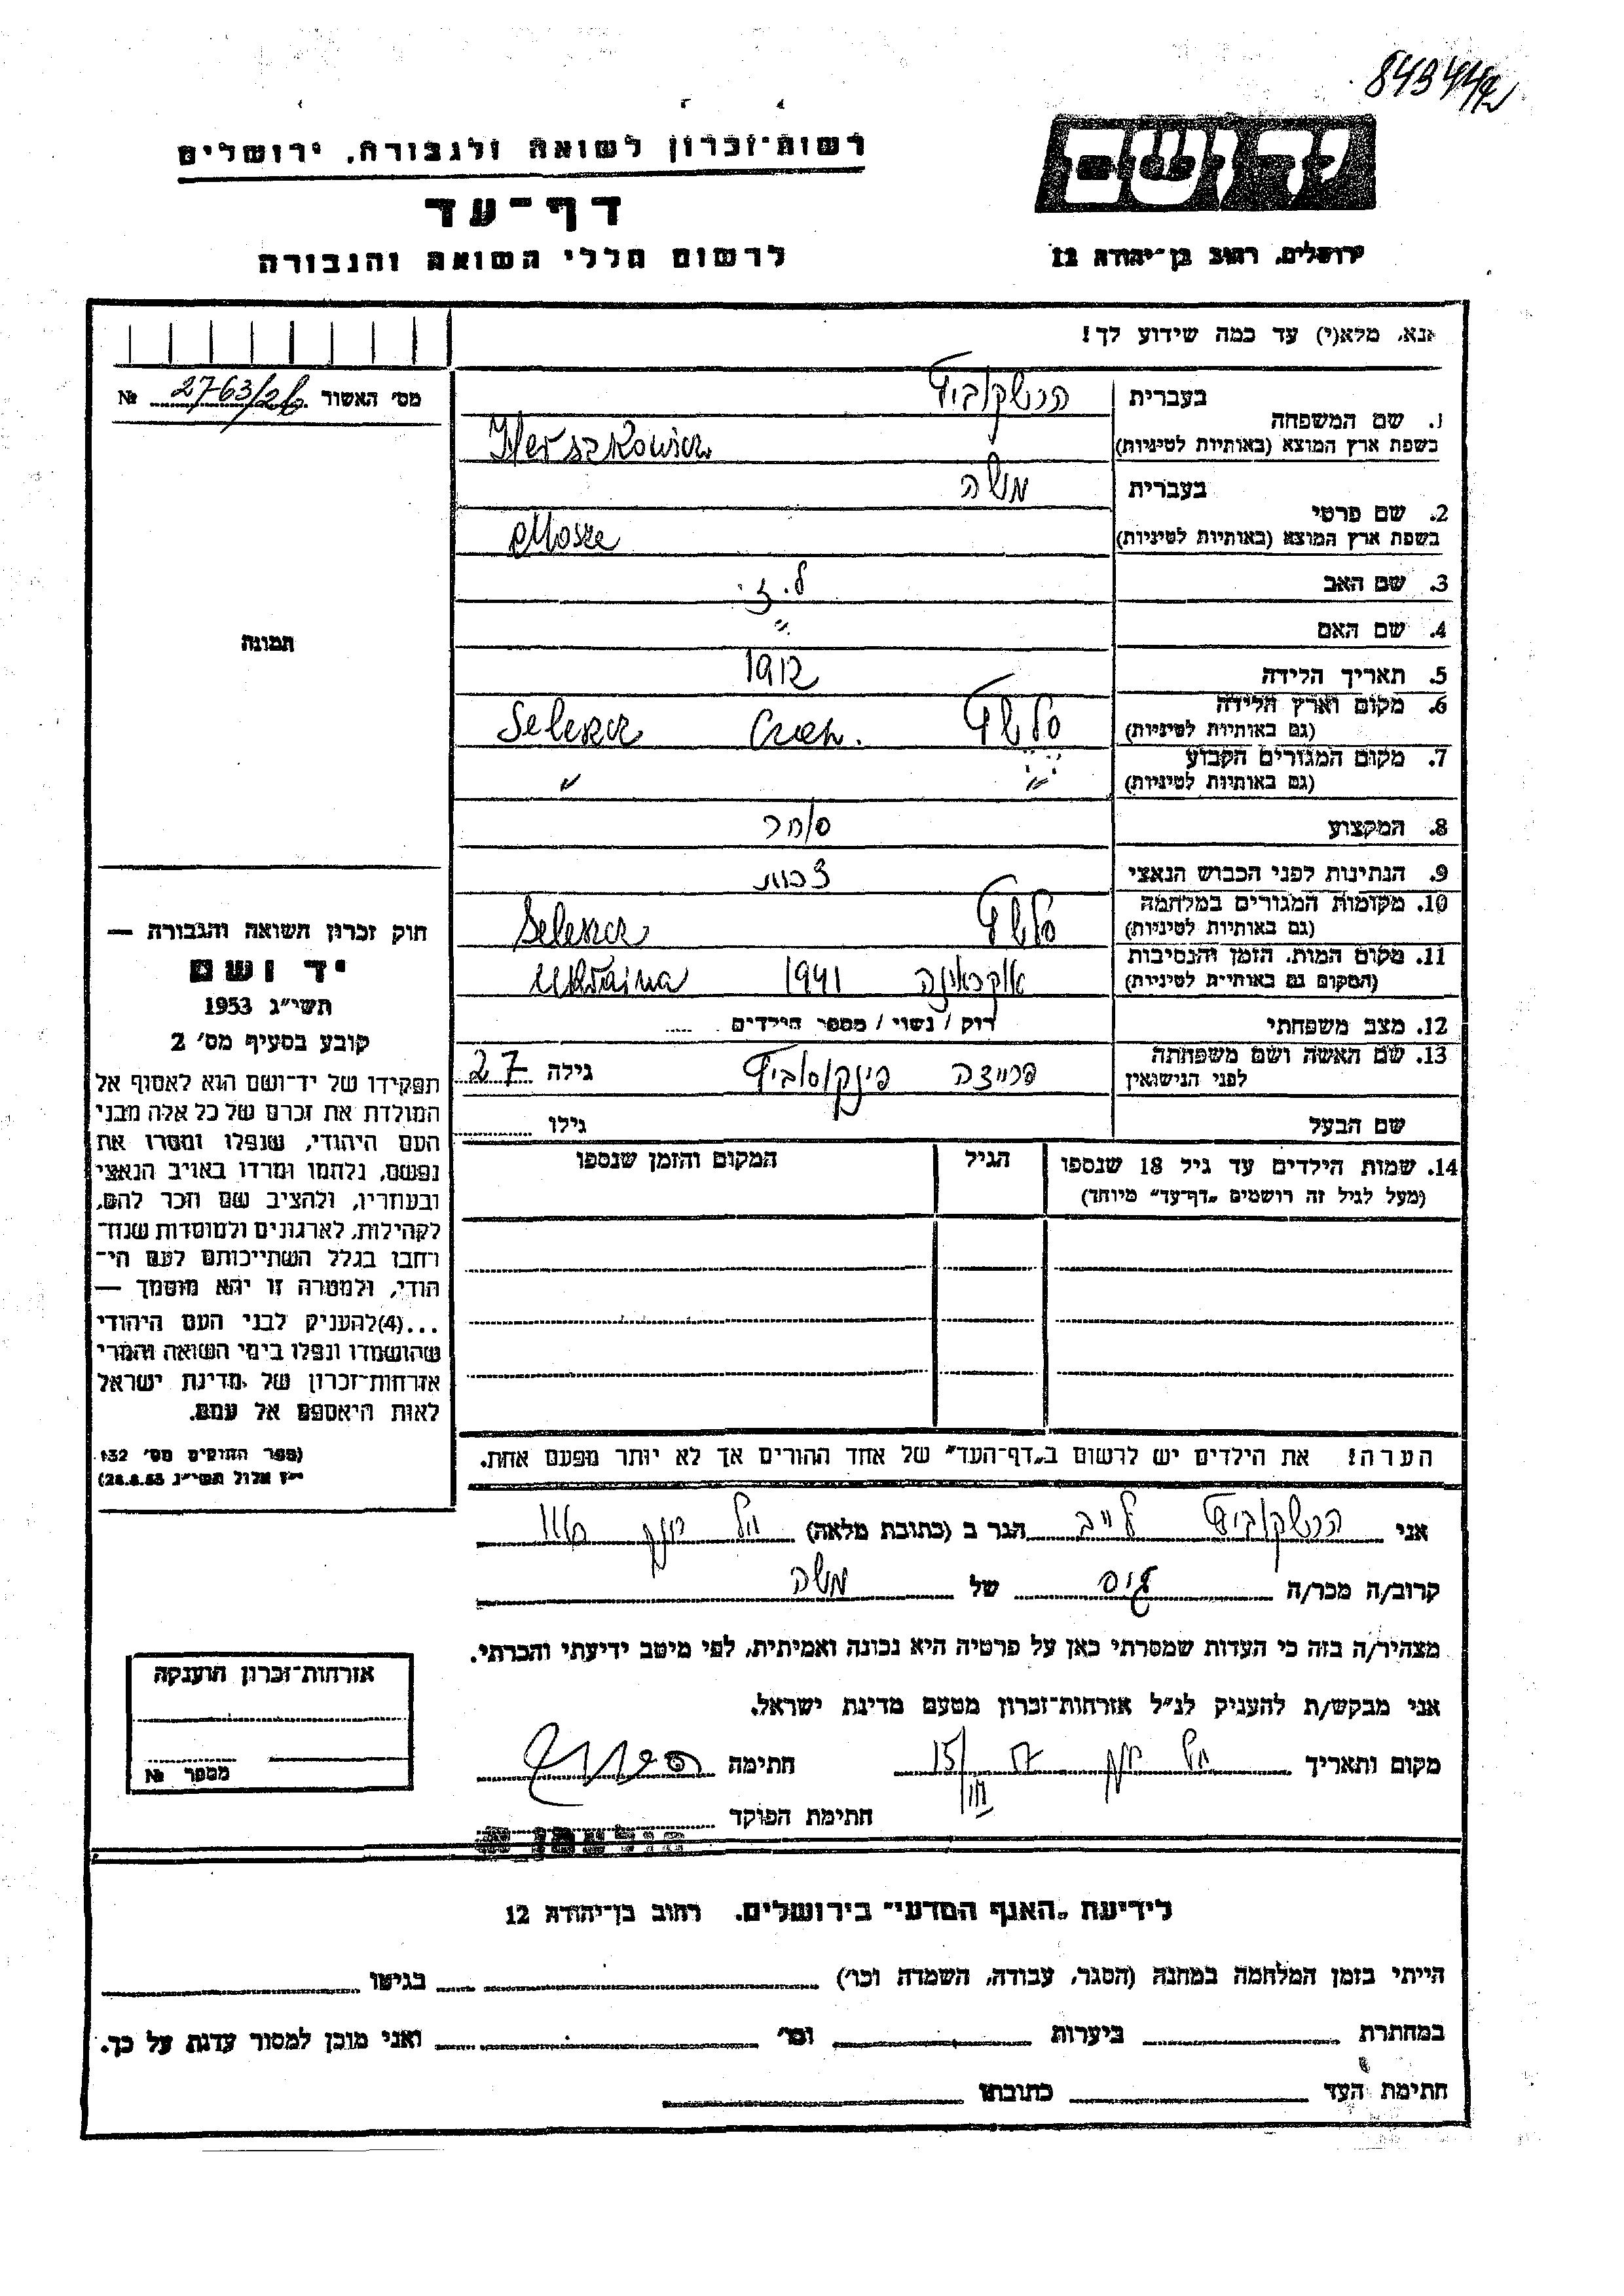 843442
רשות־זכרון לשואה ולגבורה, ירושלים
דף־עד
לרשום חללי השואה והגבורה
יד ושם
ירושלים, רחוב בן־יהודה 12
אנא, מלא(י) עד כמה שידוע לך!
מס׳ האשור 2763/26 №
תמונה
1. שם המשפחה
בעברית הרשקוביץ
בשפת ארץ המוצא (באותיות לטיניות) Herszkowicz
2. שם פרטי
בעברית משה
בשפת ארץ המוצא (באותיות לטיניות) Mosze
3. שם האב ל. י.
4. שם האם "
5. תאריך הלידה 1912
6. מקום וארץ הלידה
(גם באותיות לטיניות) סלשץ Czech. Seleszcz
7. מקום המגורים הקבוע
(גם באותיות לטיניות) " "
8. המקצוע סוחר
9. הנתינות לפני הכבוש הנאצי צכית
10. מקומות המגורים במלחמה
(גם באותיות לטיניות) סלשץ Seleszcz
11. מקום המות, הזמן והנסיבות
(המקום גם באותיות לטיניות) אוקראינה 1941 Ukraina
12. מצב משפחתי רוק / נשוי / מספר הילדים
13. שם האשה ושם משפחתה
לפני הנישואין פרייצה פינקסוביץ גילה 27
שם הבעל גילו
14. שמות הילדים עד גיל 18 שנספו הגיל המקום והזמן שנספו
(מעל לגיל זה רושמים „דף־עד" מיוחד)
הערה! את הילדים יש לרשום ב„דף־העד" של אחד ההורים אך לא יותר מפעם אחת.
חוק זכרון השואה והגבורה —
יד ושם
תשי״ג 1953
קובע בסעיף מס׳ 2
תפקידו של יד־ושם הוא לאסוף אל
המולדת את זכרם של כל אלה מבני
העם היהודי, שנפלו ומסרו את
נפשם, נלחמו ומרדו באויב הנאצי
ובעוזריו, ולהציב שם וזכר להם,
לקהילות, לארגונים ולמוסדות שנח־
רחבו בגלל השתייכותם לעם הי־
הודי, ולמטרה זו יהא מוסמך —
...(4)להעניק לבני העם היהודי
שהושמדו ונפלו בימי השואה והמרי
אזרחות־זכרון של מדינת ישראל
לאות היאספם אל עמם.
(ספר החוקים מס׳ 132
י״ז אלול תשי״ג 28.8.53)
אני הרשקוביץ לייב הגר ב (כתובת מלאה)
קרוב/ה מכר/ה גיס של משה
מצהיר/ה בזה כי העדות שמסרתי כאן על פרטיה היא נכונה ואמיתית, לפי מיטב ידיעתי והכרתי.
אני מבקש/ת להעניק לנ״ל אזרחות־זכרון מטעם מדינת ישראל.
מקום ותאריך 15/ חתימה
חתימת הפוקד
אזרחות־זכרון הוענקה
מספר №
לידיעת „האגף המדעי" בירושלים. רחוב בן־יהודה 12
הייתי בזמן המלחמה במחנה (הסגר, עבודה, השמדה וכו׳) בגיטו
במחתרת ביערות וכו׳ ואני מוכן למסור עדות על כך.
חתימת העד כתובתו